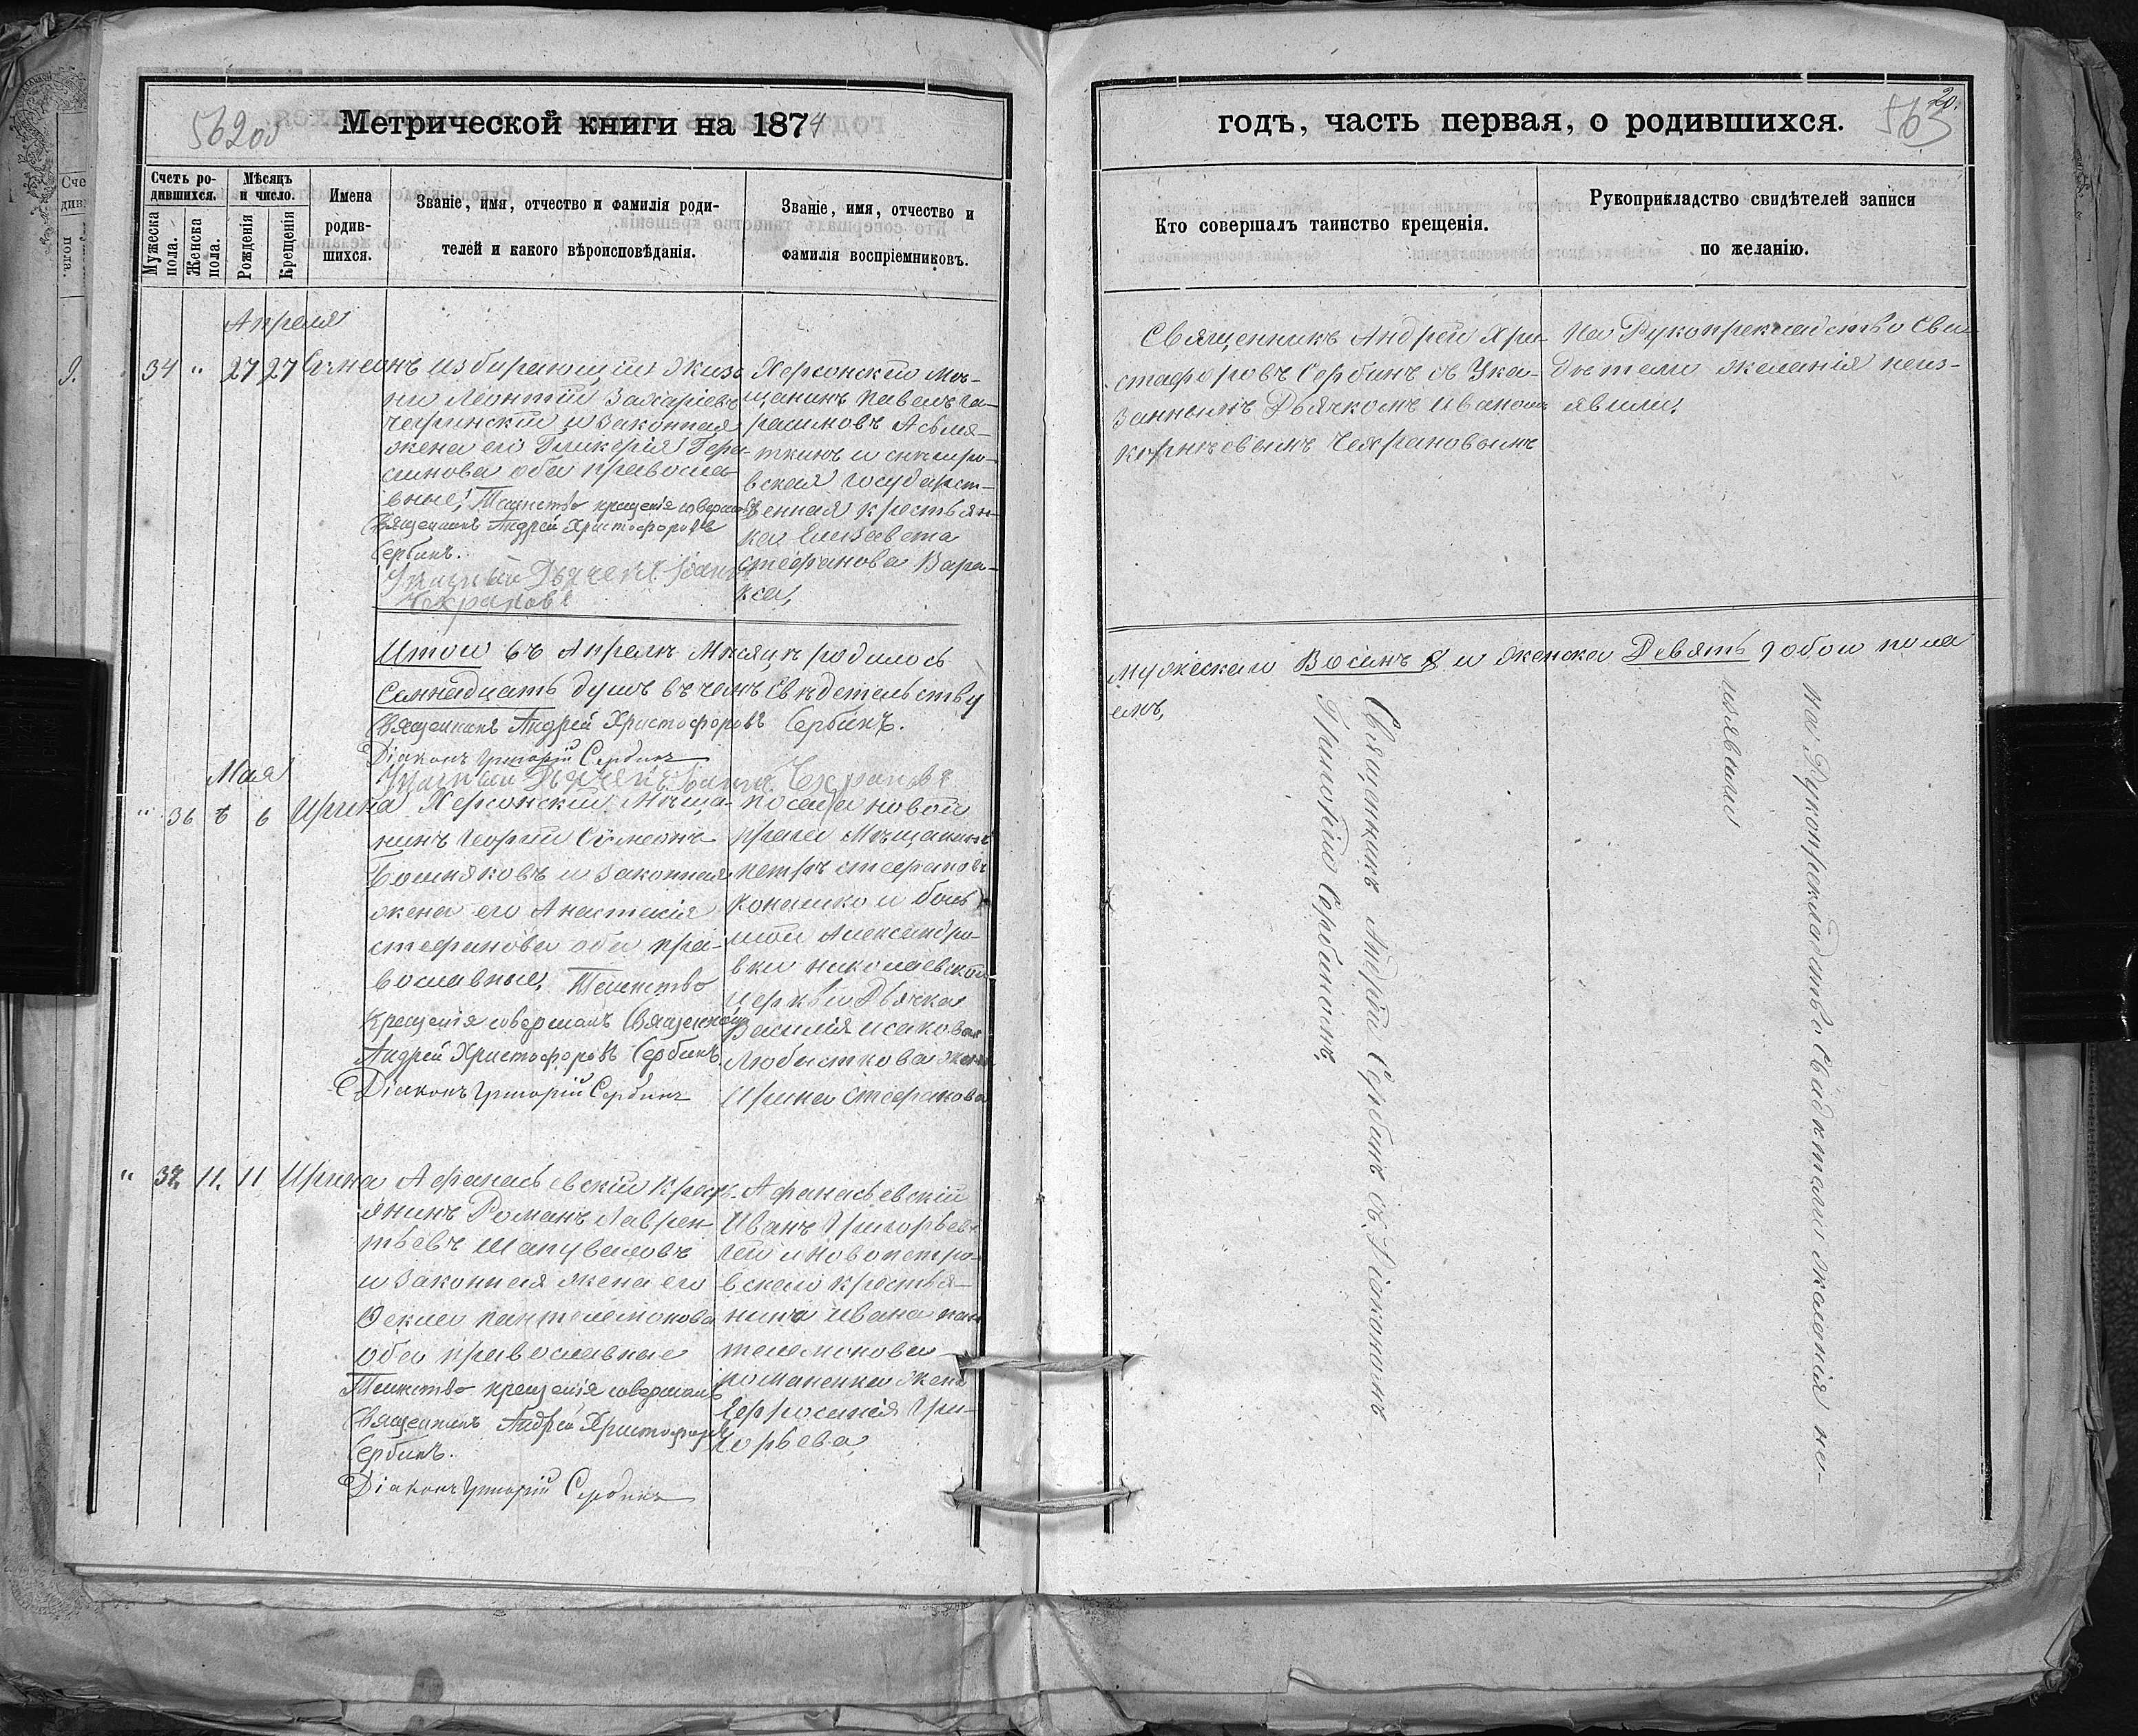 562 об
Метрической книги на 1874
Счетъ ро-
дившихся.
Мѣсяцъ
и число.
Мужеска
пола.
Женска
пола.
Рожденія
Крещенія
Имена
родив-
шихся.
Званіе, имя, отчество и фамилія роди-
телей и какого вѣроисповѣданія.
Званіе, имя, отчество и
фамилія воспріемниковъ.
Апреля
34 " 27 27 Симеонъ
избирающій Жиз-
ни Леонтій Захаріевъ
и законная
жена его Гликерія Гера-
симова оба правосла-
вные, Таинство крещенія совершалъ
Священникъ Андрей Христофоровъ
Сербинъ.
Указный Дьячекъ Іоаннъ
Чехрановъ
Херсонскій Мѣ-
щанинъ Павелъ Га-
расимовъ
и
вская государст-
венная крестьян-
ка Елисавета
Стефанова Вара-
кса,
Итого въ Апрелѣ Мѣсяцѣ родилось
Семнадцать душъ въ чемъ свѣдетельству
Священникъ Андрей Христофоровъ Сербинъ.
Діаконъ Григорій Сербинъ
Указный Дьячекъ Іоаннъ Чехрановъ
Мая
" 36 6 6 Ирина
Херсонскій Мѣща-
нинъ Георгій Симеонъ
Бошняковъ и законная
жена его Анастасія
Стефанова оба пра-
вославные, Таинство
крещенія совершалъ Священникъ
Андрей Христофоровъ Сербинъ.
Діаконъ Григорій Сербинъ
посада новой
праги Мѣщанинъ
петръ стефановъ
Конашко и боль-
шой Александро-
вки николаевской
церкви Дьячка
Василія исакова
Любисткова жена
Ирина Стефанова
" 37. 11. 11 Ирина
Афанасьевскій крест-
янинъ Романъ Лаврен-
тьевъ Шапуваловъ
и законная жена его
Ѳекла пантелемонова
оба православные
Таинство крещенія совершалъ
Священникъ Андрей Христофоровъ
Сербинъ.
Діаконъ Григорій Сербинъ
Афанасьевскій
Иванъ Григорьевъ
и новопетро-
вскаго крестья-
нина Ивана пан-
телемонова
романенка жена
Евфросинія Гри-
горьева
563
20.
годъ, часть первая, о родившихся.
Кто совершалъ таинство крещенія.
Рукоприкладство свидѣтелей записи
по желанію.
Священникъ Андрей Хри-
стофоровъ Сербинъ съ Ука-
заннымъ Дьячкомъ Иваномъ
Корнѣевымъ Чехрановымъ
На Рукопрекладство Сви-
дѣтели желанія неиз-
явили,
Мужескаго Восемь 8 и женска Девять 9 обои пола
емъ,
Священникъ Андрей Сербинъ съ Діокономъ
Григоріемъ Сербинымъ
на Рукопрекладство Свидѣтели желанія не-
изявили